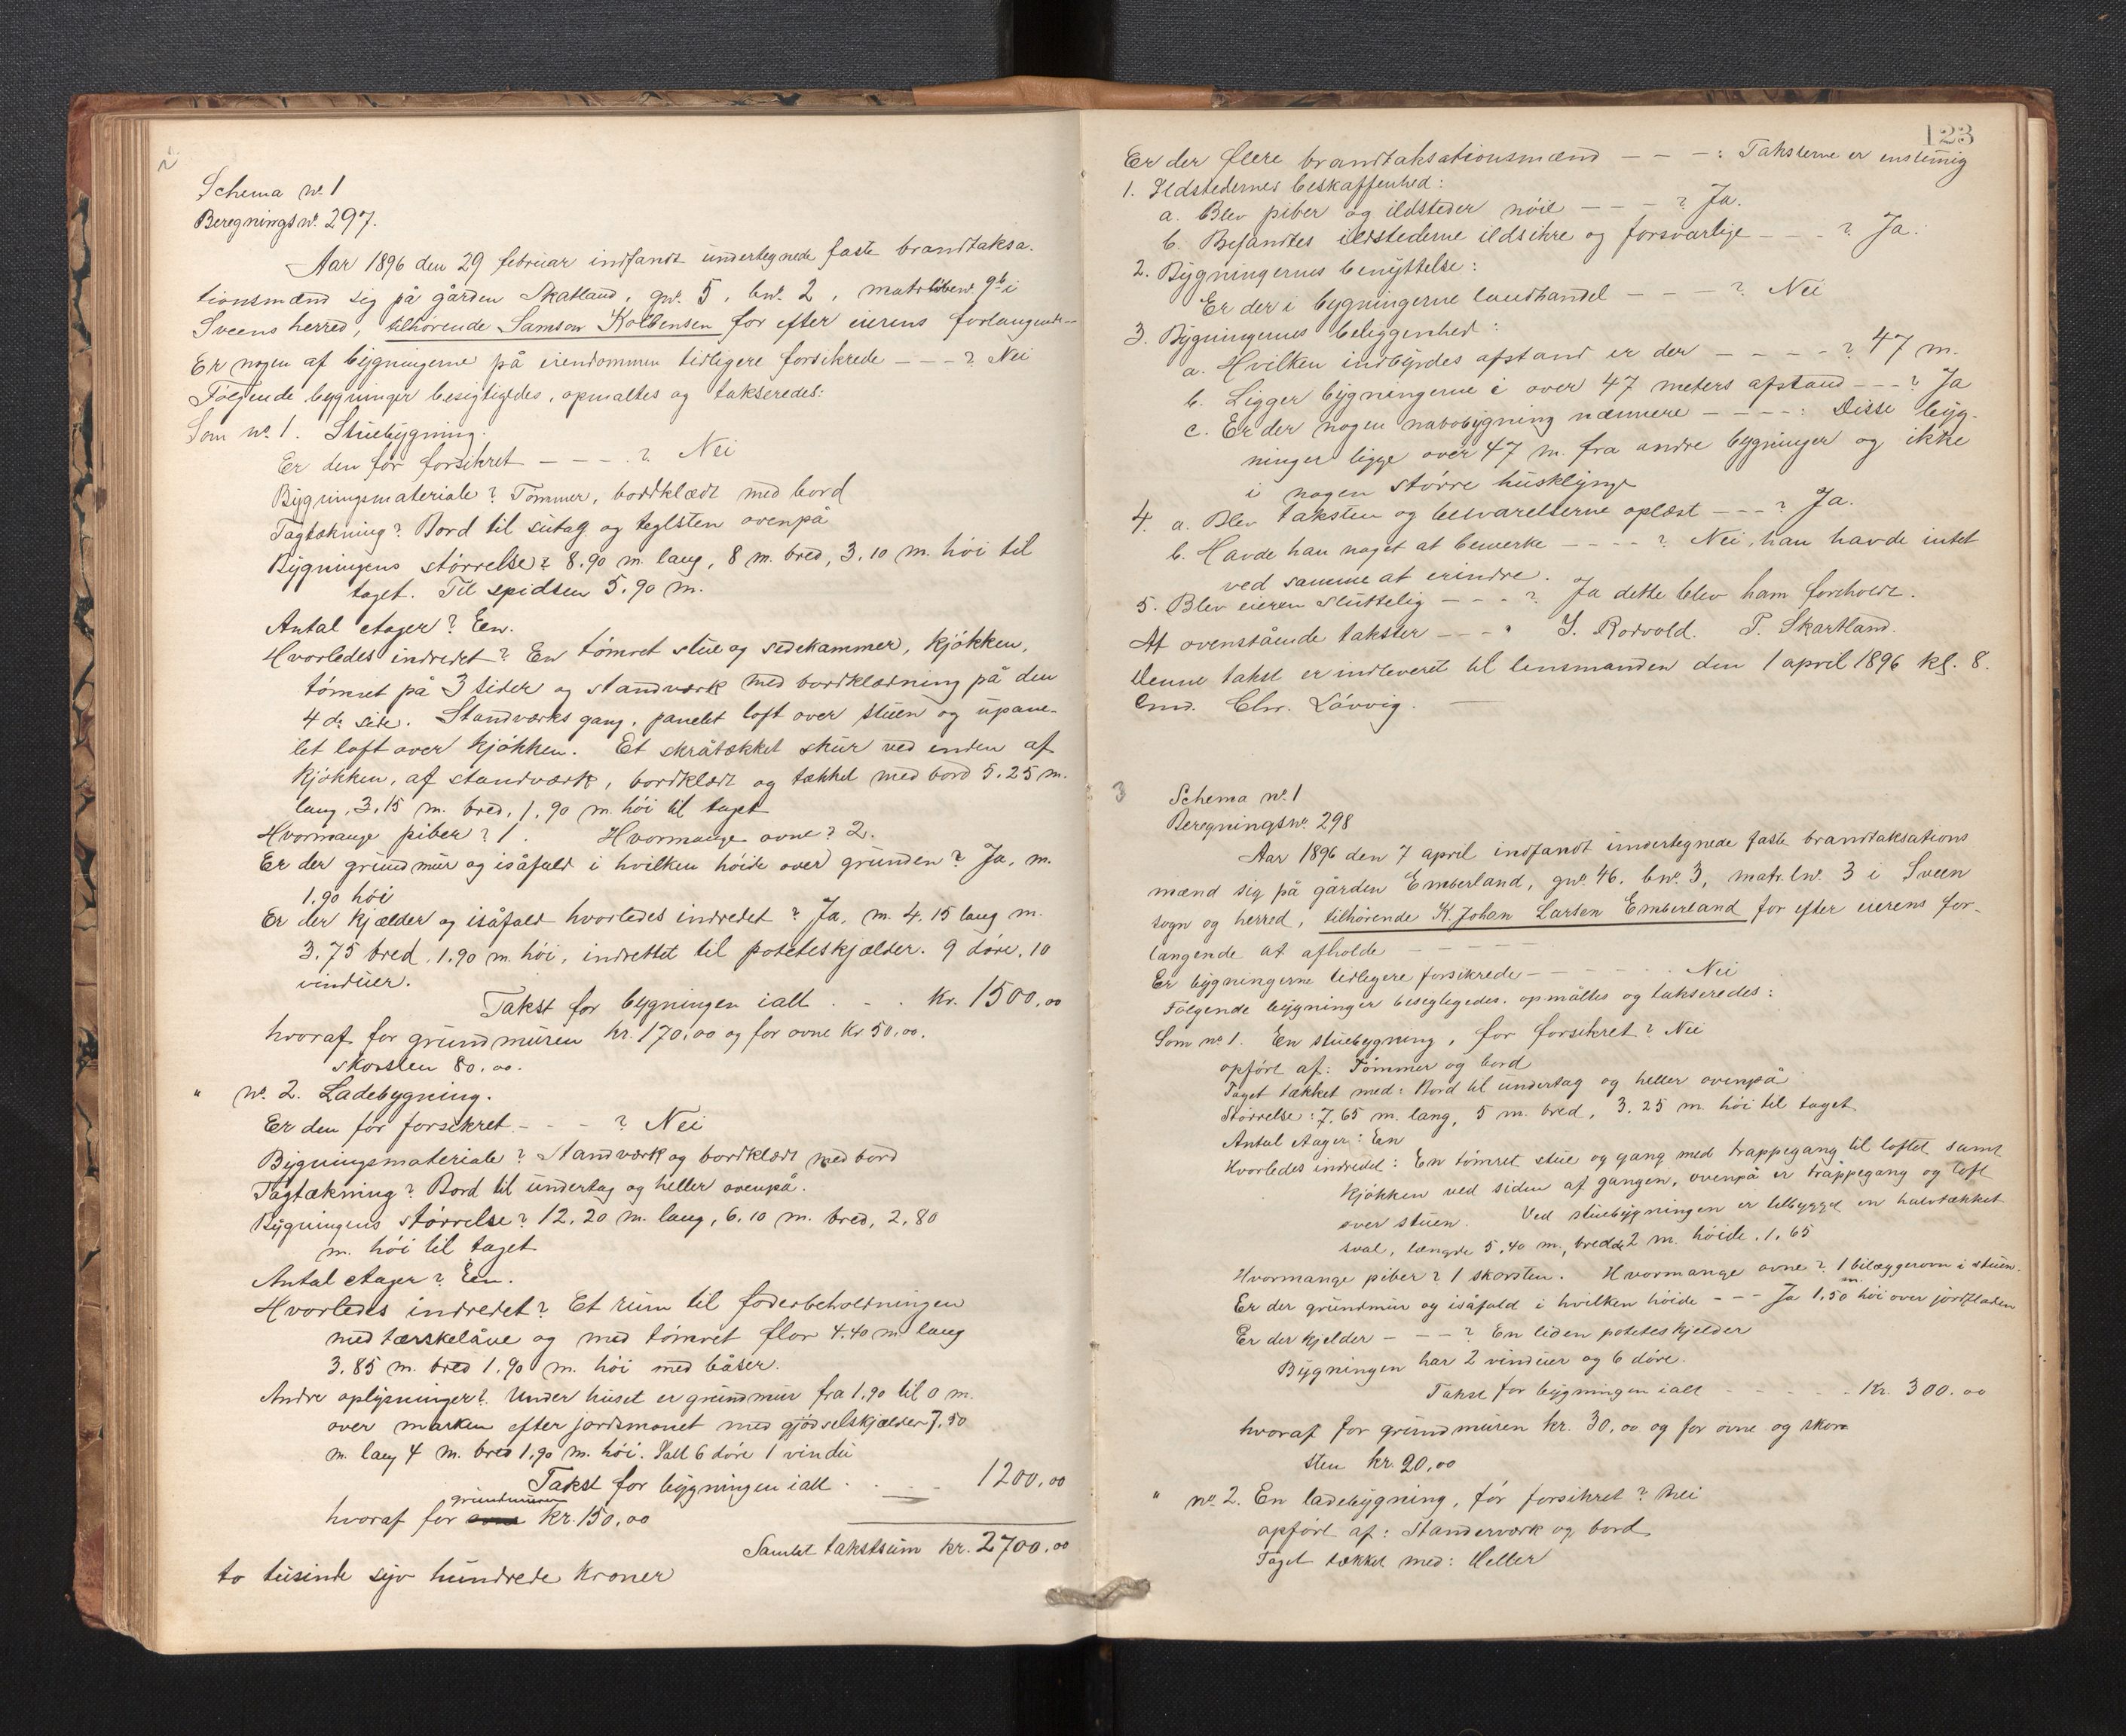 2.
Schema nr. 1
Beregningsnr. 297.
Aar 1896 den 29 februar indfandt undertegnede faste brandtaksa-
tionsmænd sig på gården Skatland, gnr. 5, bnr. 2, matrløbenr. 9b i
Sveens herred, tilhørende Samson Kolbensen for efter eierens forlangende —
Er nogen af bygningerne på eiendommen tidligere forsikrede — — — ? Nei
Følgende bygninger besigtigedes, opmaltes og takseredes:
Som nr. 1. Stuebygning.
Er den før forsikret — — — ? Nei
Bygningsmateriale? Tømmer, bordklædt med bord
Tagtækning? Bord til sutag og teglsten ovenpå
Bygningens størrelse? 8.90 m. lang, 8 m. bred, 3.10 m. høi til
taget. Til spidsen 5.90 m.
Antal etager? Een.
Hvorledes indredet? En tømret stue og sidekammer, kjøkken,
tømret på 3 sider og standværk med bordklædning på den
4de side. Standværks gang, panelet loft over stuen og upane-
let loft over kjøkken. Et skråtækket skur ved enden af
kjøkken, af standværk, bordklædt og tækket med bord 5.25 m.
lang, 3.15 m. bred, 1.90 m. høi til taget
Hvormange piber? 1. Hvormange ovne? 2.
Er der grundmur og isåfald i hvilken høide over grunden? Ja, m.
1.90 høi
Er der kjælder og isåfald hvorledes indredet? Ja, m. 4.15 lang m.
3.75 bred, 1.90 m. høi, indrettet til poteteskjælder. 9 døre, 10
vinduer.
Takst for bygningen ialt . - . kr. 1500.00
hvoraf for grundmuren kr. 170.00 og for ovne kr. 50.00.
skorsten 80.00.
" nr. 2. Ladebygning.
Er den før forsikret - - - ? Nei
Bygningsmateriale? Standværk og bordklædt med bord
Tagtækning? Bord til undertag og heller ovenpå.
Bygningens størrelse? 12.20 m. lang, 6.10 m. bred, 2.80
m. høi til taget
Antal etager? Een.
Hvorledes indredet? Et rum til foderbeholdningen
med tærskelåve og med tømret flor 4.40 m lang
3.85 m. bred 1.90 m. høi med båser.
Andre oplysninger? Under huset er grundmur fra 1.90 til 0 m.
over marken efter jordsmonet med gjødselskjælder 7.50
m. lang 4 m. bred 1.90 m. høi. Ialt 6 døre 1 vindu
Takst for bygningen ialt . . . 1200.00
grundmuren
hvoraf for kr. 150.00
Samlet takstsum kr. 2700.00
to tusinde syv hundrede kroner
123
Er der flere brandtaksationsmænd — — — : Taksterne er enstemig
1. Ildstedernes beskaffenhed:
a. Blev piber og ildsteder nöie — — — ? Ja.
b. Befandtes ildstederne ildsikre og forsvarlige — — — ? Ja.
2. Bygningernes benyttelse:
Er der i bygningerne landhandel — — — ? Nei
3. Bygningernes beliggenhed:
a. Hvilken indbyrdes afstand er der — — — — ? 47 m.
b. Ligger bygningerne i over 47 meters afstand — — — ? Ja
c. Er der nogen nabobygning nærmere — — — — : Disse byg-
ninger ligge over 47 m. fra andre bygninger og ikke
i nogen større husklynge
4. a. Blev taksten og besvarelserne oplæst — — — ? Ja.
b. Havde han noget at bemerke — — — — ? Nei, han havde intet
ved samme at erindre.
5. Blev eieren sluttelig — — — ? Ja dette blev ham foreholdt.
At ovenstående takster — — — " J. Rodvold. T. Skartland.
Denne takst er indleveret til lensmanden den 1 april 1896 kl. 8.
Chr. Låvvig. —
3
Schema nr. 1
Beregningsnr. 298
Aar 1896 den 7 april indfandt undertegnede faste brandtaksations
mænd sig på gården Emberland, gnr. 46, bnr. 3, matr. lnr. 3 i Sveen
sogn og herred, tilhørende K. Johan Larsen Emberland for efter eierens for-
langende at afholde — — — — —
Er bygningerne tidligere forsikrede — — — - - . Nei
Følgende bygninger besigtigedes, opmåltes og takseredes:
Som nr. 1. En stuebygning, før forsikret? Nei
opført af: Tømmer og bord
Taget tækket med: Bord til undertag og heller ovenpå
Størrelse: 7.65 m. lang, 5 m. bred, 3.25 m. høi til taget.
Antal etager: Een
Hvorledes indredet: En tømret stue og gang med trappegang til loftet samt
kjøkken ved siden af gangen, ovenpå er trappegang og loft
over stuen. Ved stuebygningen er tilbygget en halvtækket
sval, længde 5.40 m., bredde 2 m. høide. 1.65
Hvormange piber? 1 skorsten. Hvormange ovne? 1 bilæggerovn i stuen.
Er der grundmur og isåfald i hvilken høide — — — Ja 1.50 m høi over jordfladen
Er der kjelder — — — ? En liden poteteskjelder
Bygningen har 2 vinduer og 6 døre.
Takst for bygningen ialt - - - - - . Kr. 300.00
hvoraf for grundmuren kr. 30.00 og for ovne og skor
sten kr. 20.00
" nr. 2. En ladebygning, før forsikret? Nei
opført af: Standerværk og bord
Taget tækket med: Heller